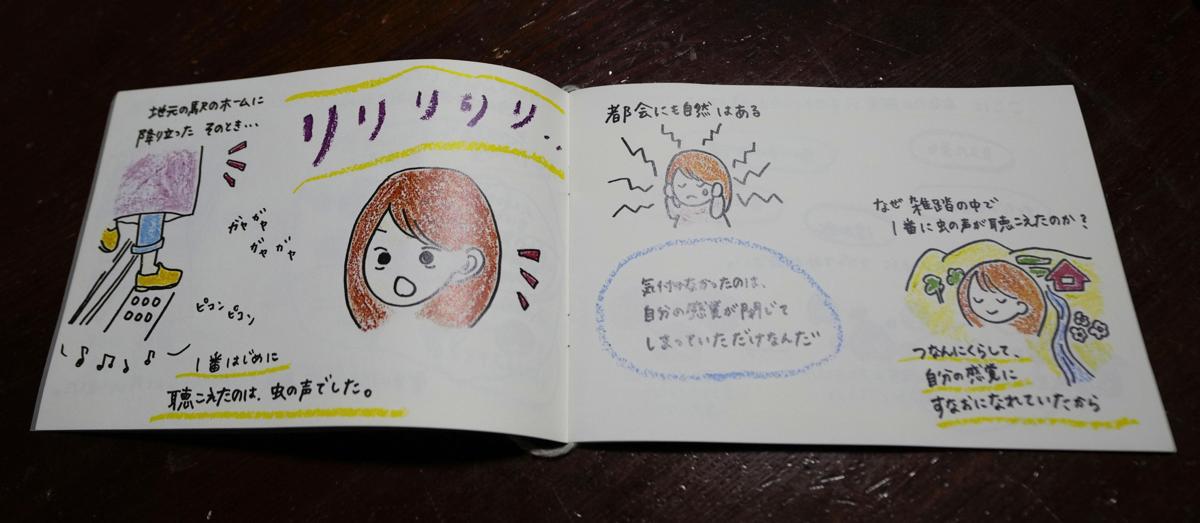 地元の駅のホームに
降り立った そのとき…
リリリリリ..
ガヤガヤ
ガヤガヤ
ピコンピコン
1番はじめに
聴こえたのは、虫の声でした。
都会にも自然はある
気付けなかったのは、
自分の感覚が閉じて
しまっていただけなんだ
なぜ雑踏の中で
1番に虫の声が聴こえたのか?
つなんにくらして、
自分の感覚に
すなおになれていたから